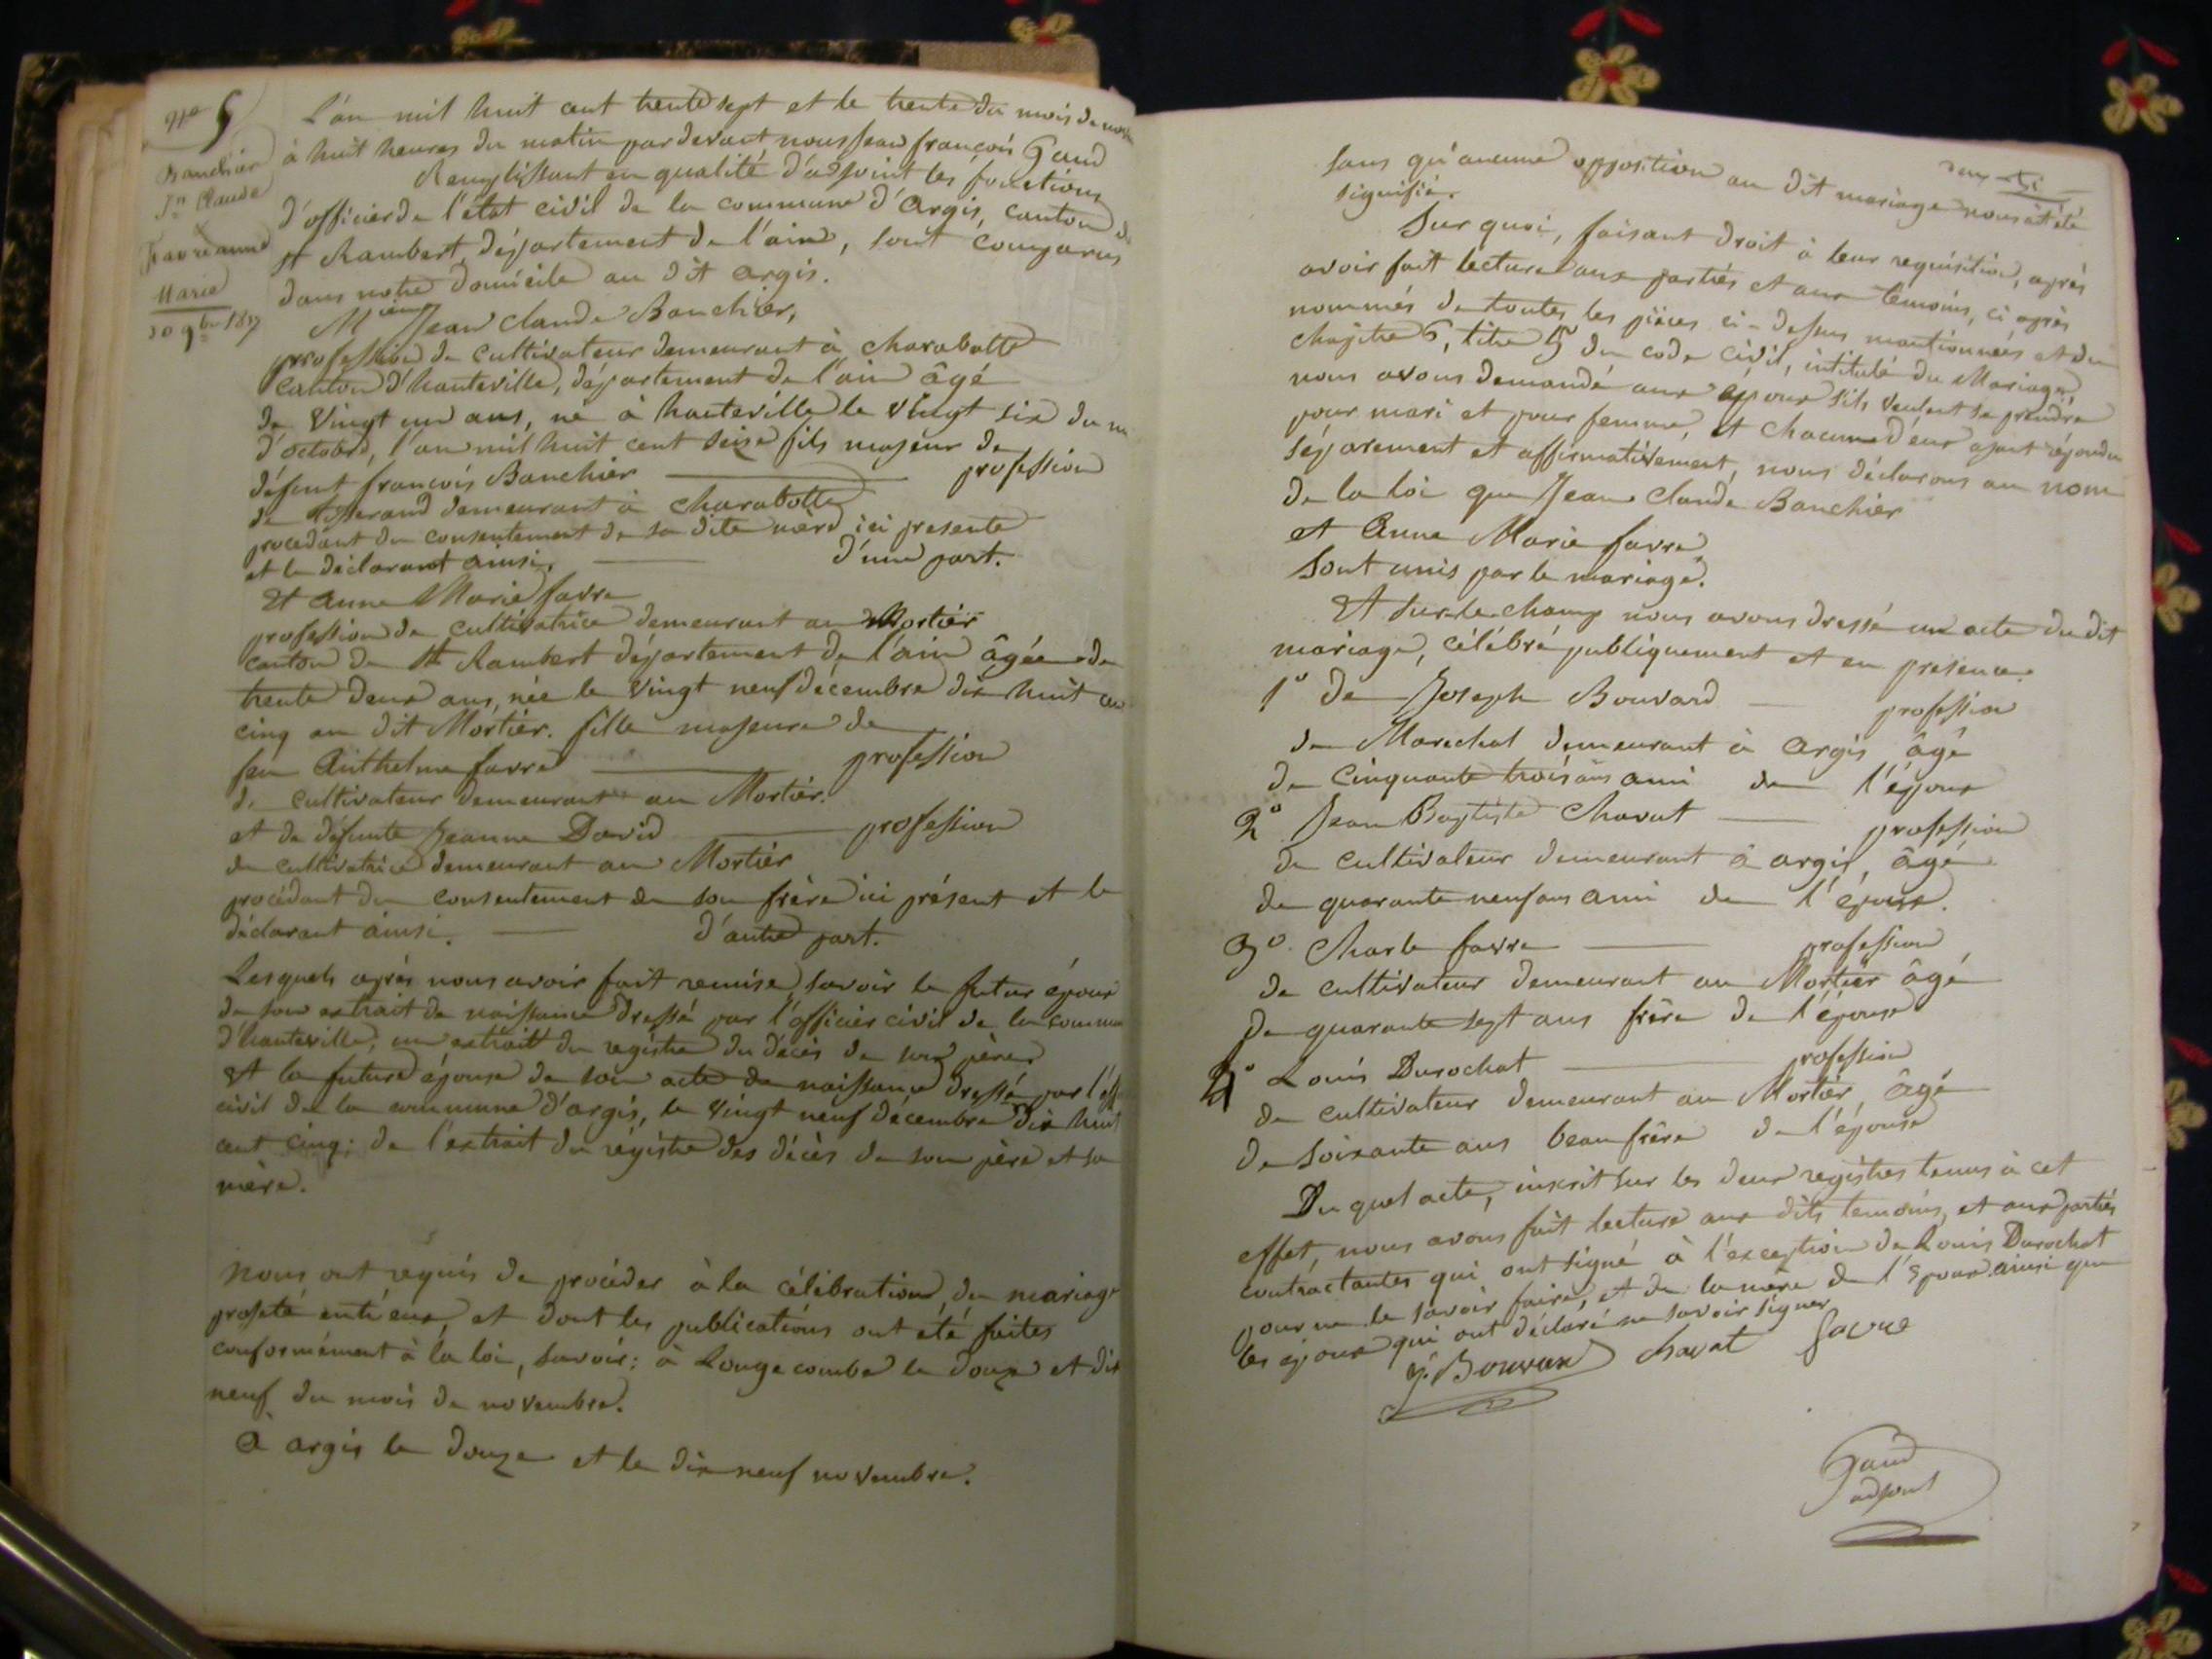 No 5
Banchier
Jn Claude
Favre anne
Marie
30 9bre 1837
L'an mil huit cent trente sept et le trente du mois de
à huit heures du matin par devant nous Jean françois Gaud
Remplissant en qualité d'adjoint les fonctions
d'officier de l'état civil de la commune d'Argis, canton de
St Rambert, département de l'ain, sont comparus
dans notre domicile au dit argis.
Jean Claude Banchier,
profession de cultivateur demeurant à charabotte
canton d'hauteville, département de l'ain âgé
de vingt un ans, né à hauteville le vingt six du m
d'octobre, l'an mil huit cent seize fils majeur de
défunt françois Banchier profession
de tisserand demeurant à charabotte
procédant du consentement de sa dite mère ici presente
et le déclarant ainsi. d'une part.
Et anne Marie favre
profession de cultivatrice demeurant au Mortier
canton de St Rambert département de l'ain âgée de
trente deux ans, née le vingt neuf décembre dix huit cen
cinq au dit Mortier. fille majeure de
feu Anthelme favre profession
de cultivateur demeurant au Mortier.
et de défunte Jeanne David profession
de cultivatrice demeurant au Mortier
procédant du consentement de son frère ici présent et le
déclarant ainsi. d'autre part.
Lesquels après nous avoir fait remise, savoir le futur époux
de son extrait de naissance dressé par l'officier civil de la commu
d'hauteville, un extrait du registre du décès de son père
Et la future épouse de son acte de naissance dressé par l'off
civil de la commune d'argis, le vingt neuf décembre dix huit
cent cinq; de l'extrait du régistre des décès de son père et sa
mère.
Nous ont requis de procéder à la célébration du mariage
projeté entre eux, et dont les publications ont été faites
conformément à la loi, savoir; à Longecombe le douze et dix
neuf du mois de novembre.
à argis le douze et le dix neuf novembre.
sans qu'aucune opposition au dit mariage nous ait été
signifié.
Sur quoi, faisant droit à leur requisition, après
avoir fait lecture aux parties et aux témoins, ci après
nommés de toutes les pièces ci-dessus mentionnées et du
chapitre 6, titre 5 du code civil, intitulé du Mariage,
nous avons demandé aux époux s'ils veulent se prendre
pour mari et pour femme, et chacun d'eux ayant répondu
séparement et affirmativement, nous déclarons au nom
de la loi que Jean Claude Banchier
et Anne Marie favre
sont unis par le mariage.
Et sur le champ nous avons dressé un acte du dit
mariage, célébré publiquement et en presence
1º De Joseph Bouvard profession
de Marechal demeurant à Argis âgé
de cinquante trois ans ami de l'époux
2º Jean Baptiste Chavat profession
de cultivateur demeurant à argis, âgé
de quarante neuf ans ami de l'époux.
3º Charle favre profession
de cultivateur demeurant au Mortier âgé
de quarante sept ans frère de l'épouse
4º Louis Durochat profession
de cultivateur demeurant au Mortier, âgé
de soixante ans beau frère de l'épouse
Du quel acte, inscrit sur les deux registres tenus à cet
effet, nous avons fait lecture aux dits temoins, et aux parties
contractantes qui ont signé à l'exception de Louis Durochat
pour ne le savoir faire, et de la mère de l'époux ainsi que
les époux qui ont déclaré ne savoir signer
J. Bouvard chavat favre
Gaud
adjoint